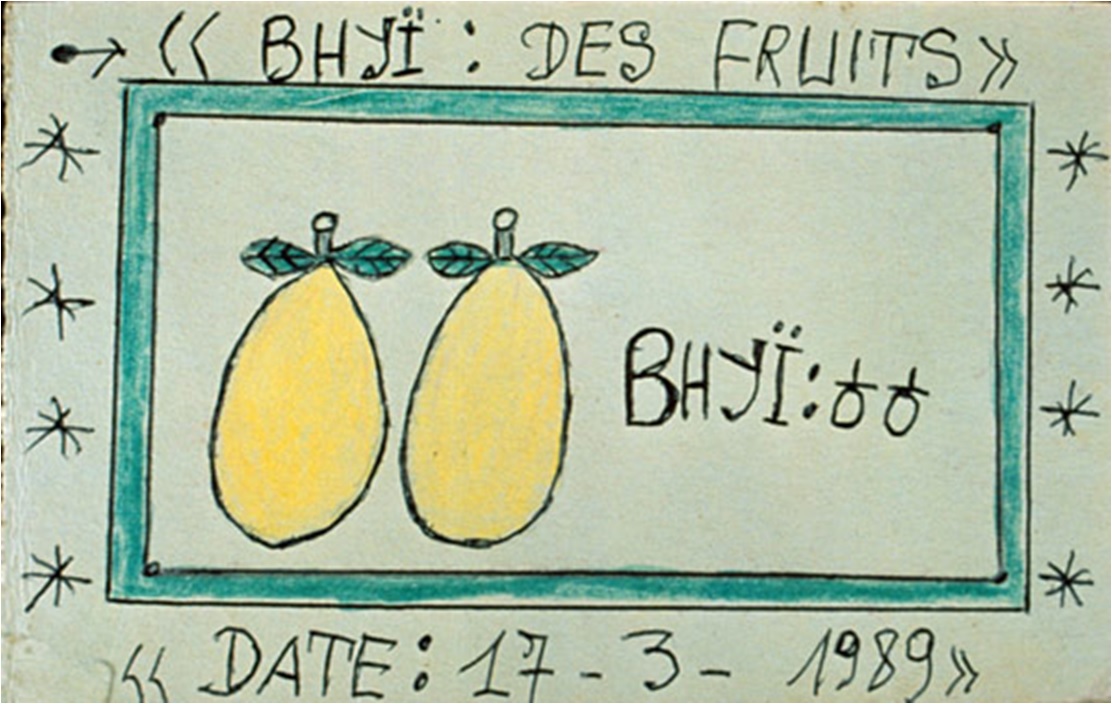 « BHYÏ : DES FRUITS »
BHYÏ :
« DATE : 17 - 3 - 1989 »